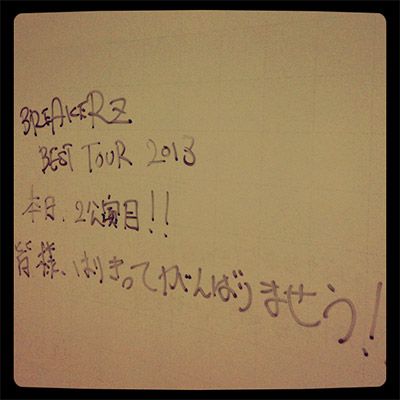 BREAKERZ
BEST TOUR 2013
本日、2公演目!!
皆様、はりきってがんばりませう!